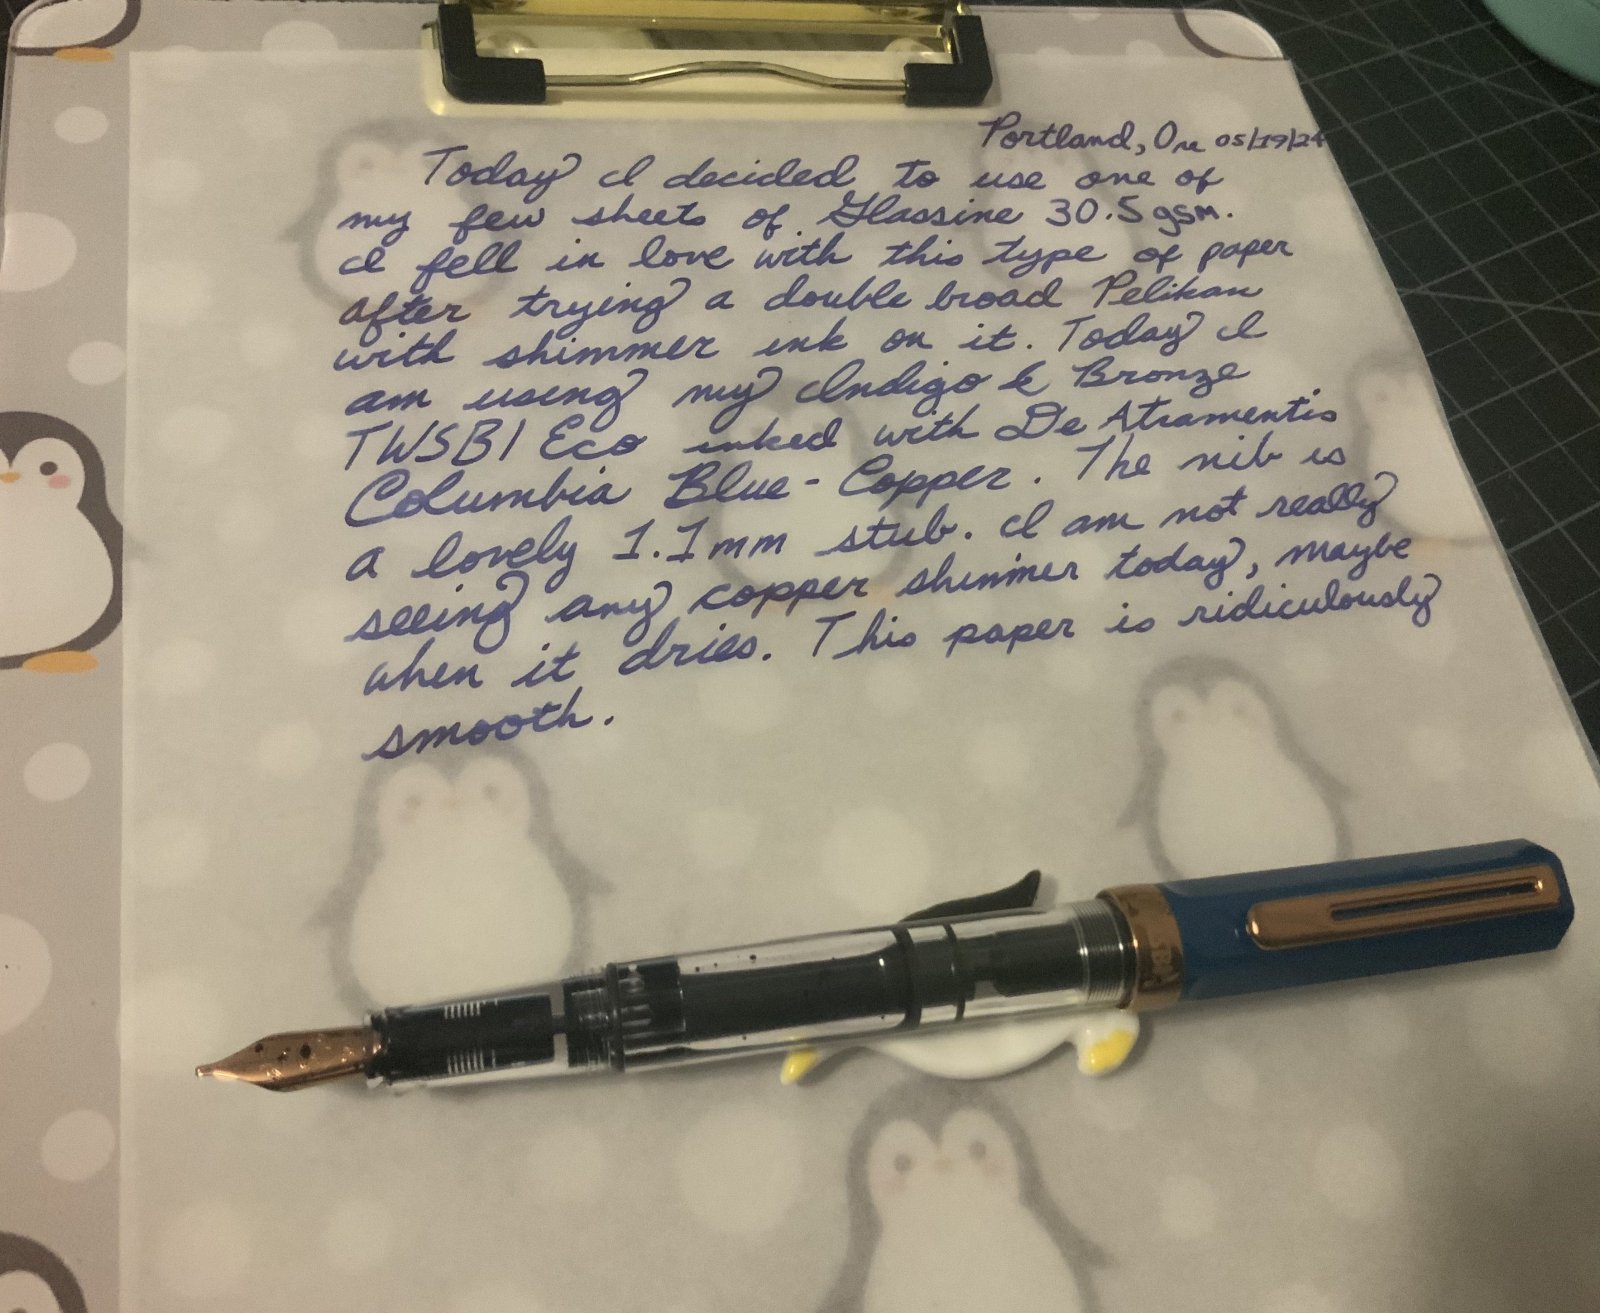 Portland, Ore 05/19/24
Today I decided to use one of
my few sheets of Glassine 30.5 gsm.
I fell in love with this type of paper
after trying a double broad Pelikan
with shimmer ink on it. Today I
am using my Indigo & Bronze
TWSBI Eco inked with De Atramentis
Columbia Blue-Copper. The nib is
a lovely 1.1mm stub. I am not really
seeing any copper shimmer today, maybe
when it dries. This paper is ridiculously
smooth.